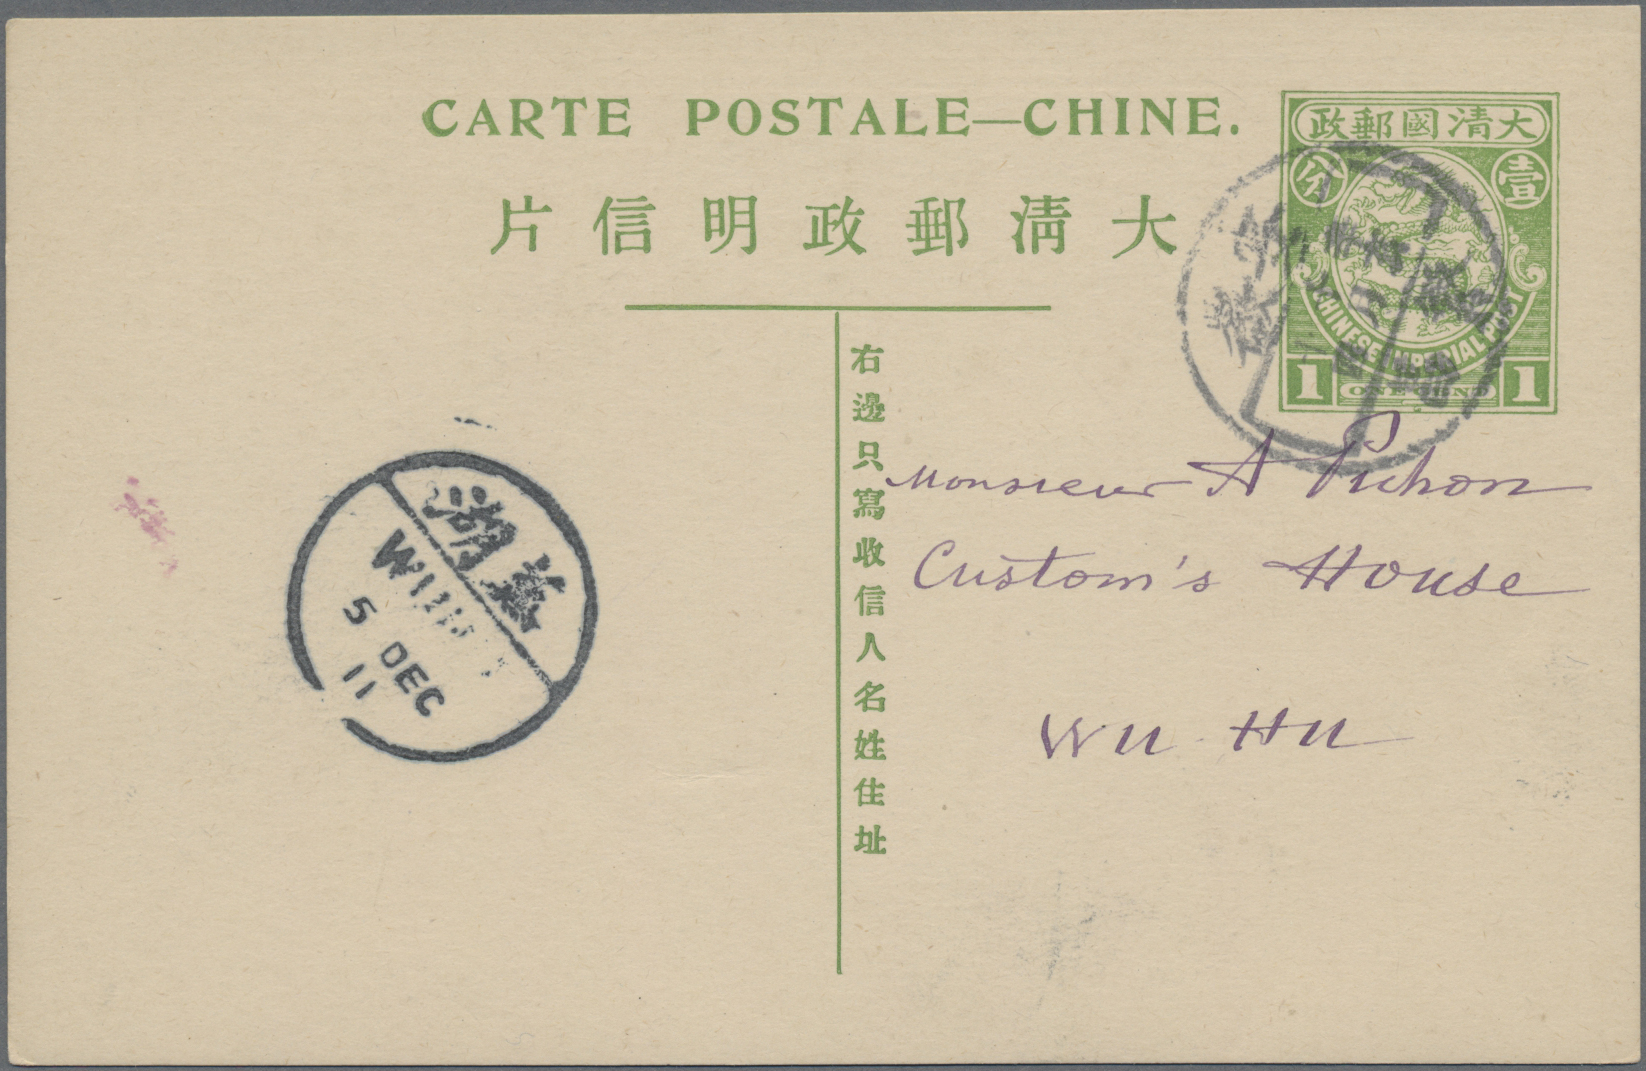 CARTE POSTALE—CHINE.
大清郵政明信片
大清國郵政
壹分
CHINESE IMPERIAL POST
1 ONE CENT 1
右邊只寫收信人名姓住址
Monsieur A Pichon
Custom's House
Wu Hu
蕪湖
5 DEC
11